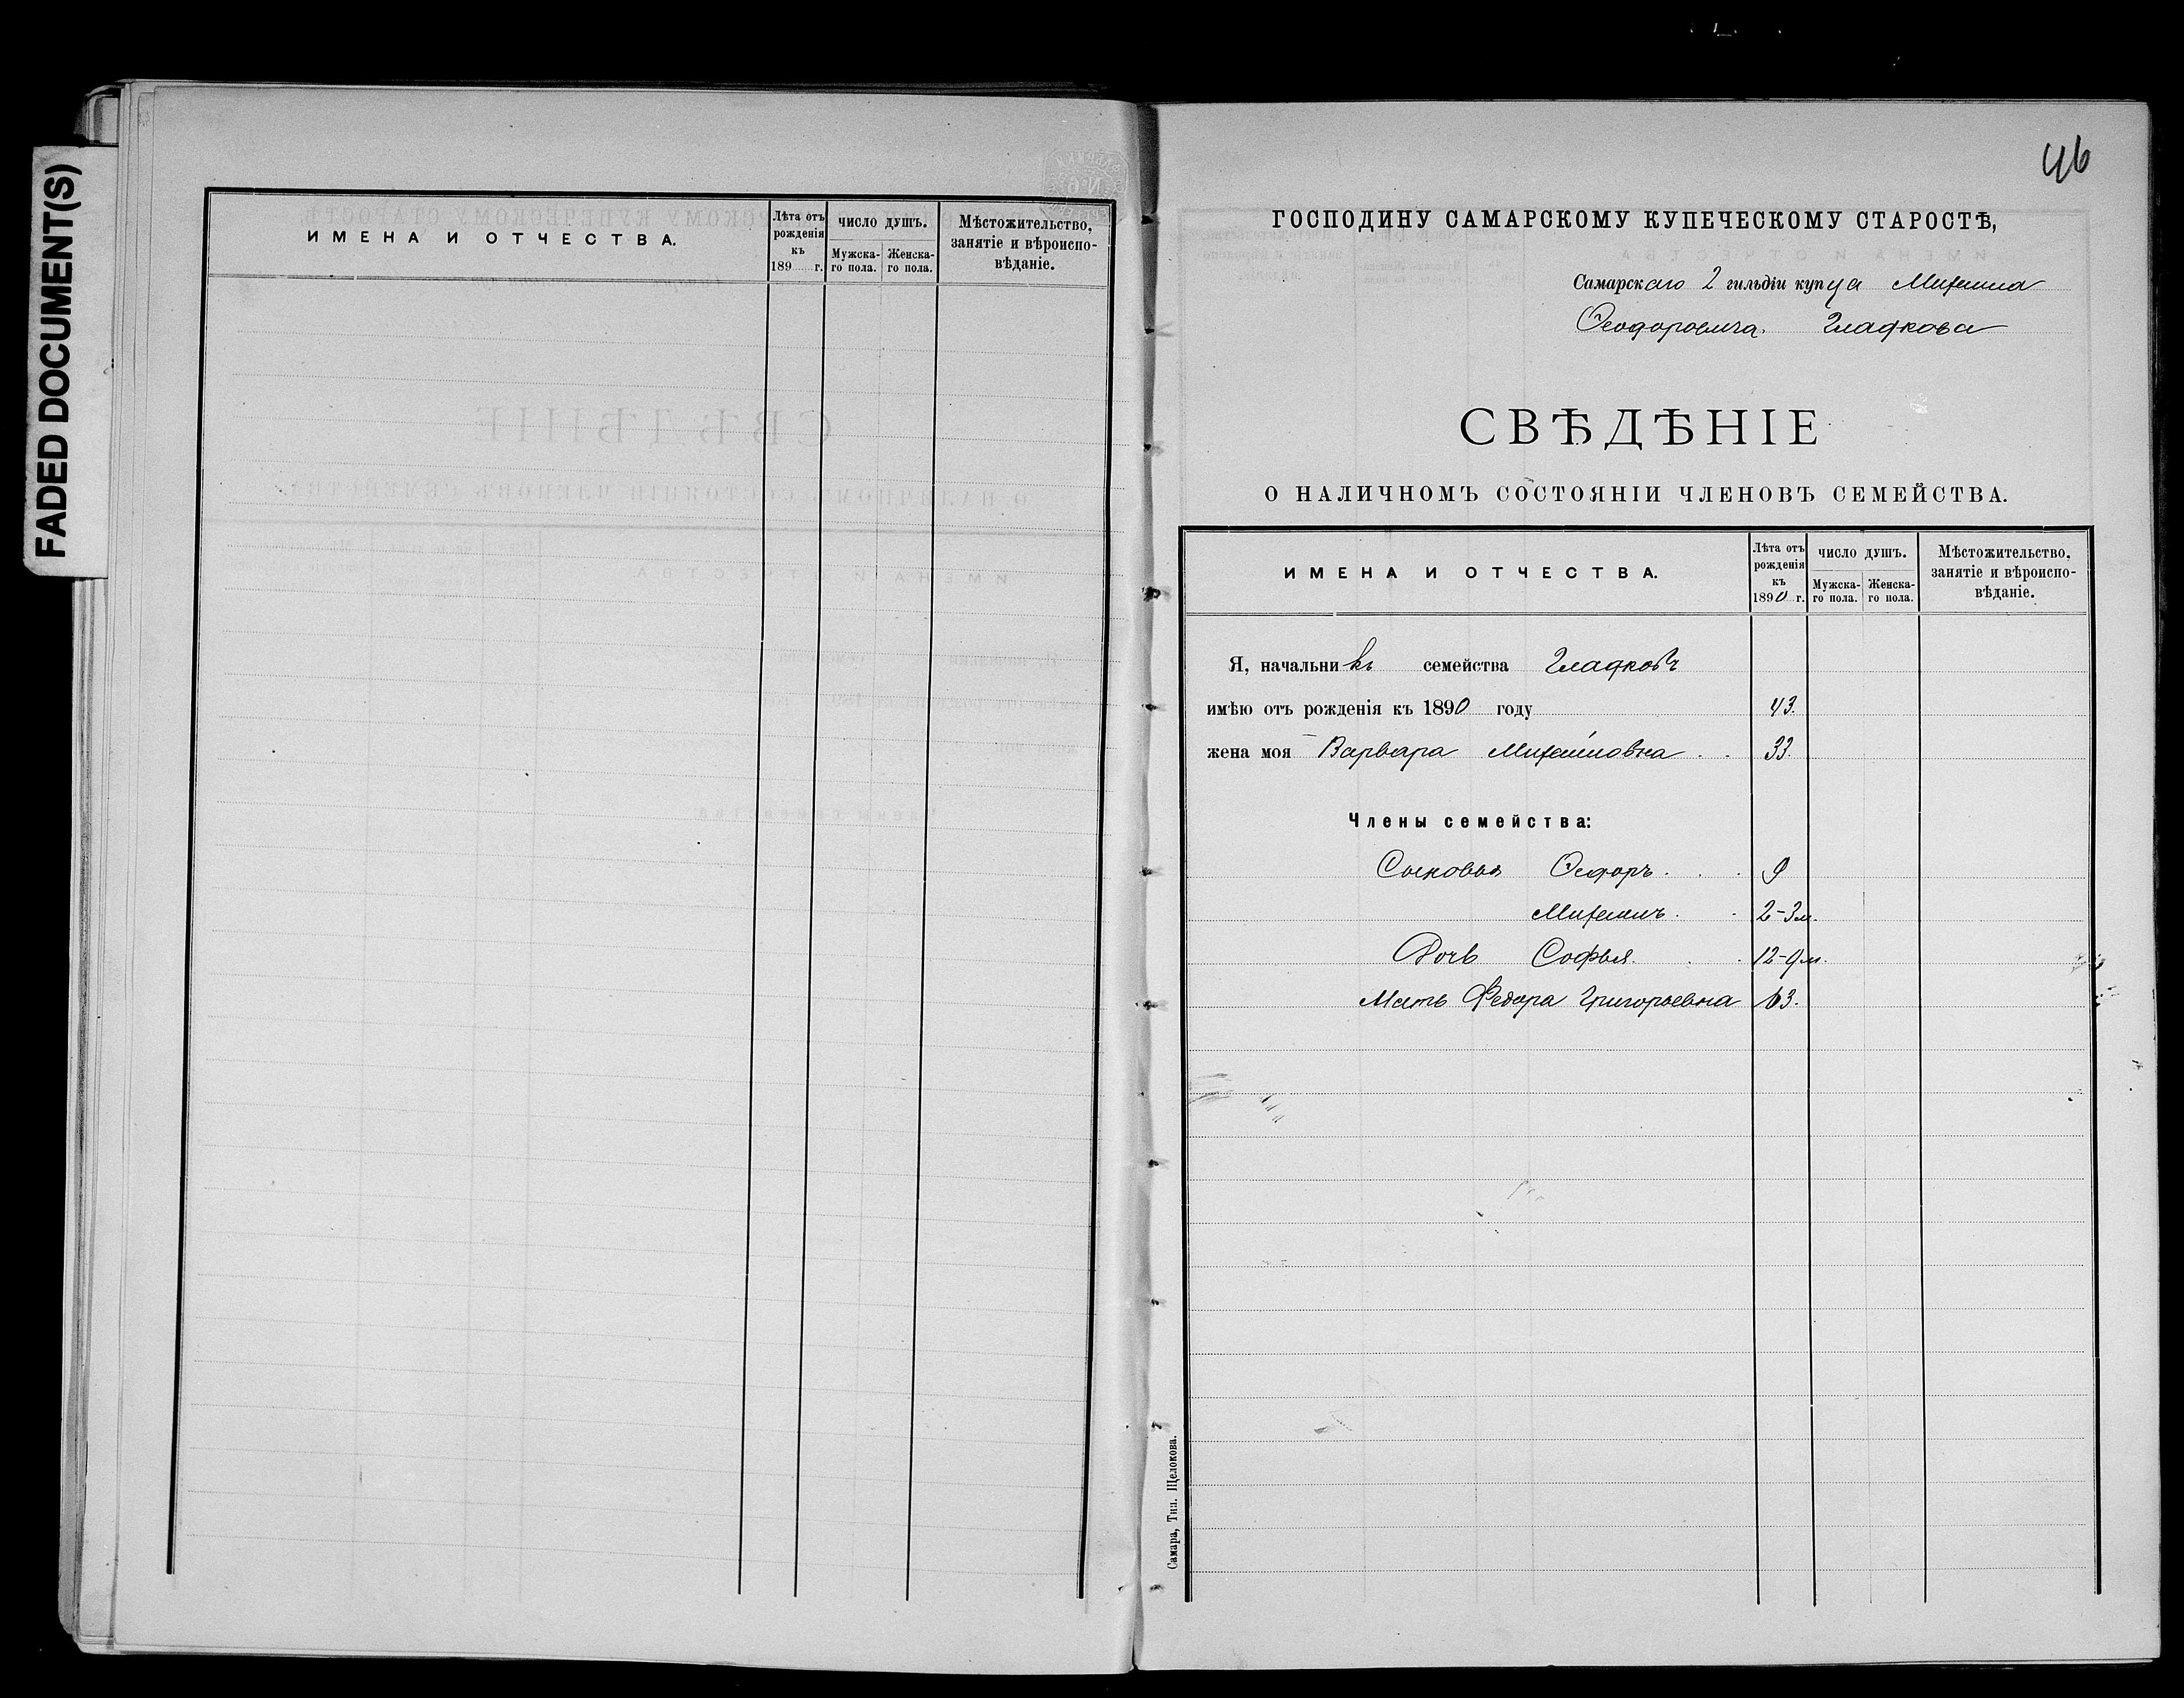 FADED DOCUMENT(S)
ИМЕНА И ОТЧЕСТВА.
Лѣта отъ рожденія къ 189 г.
ЧИСЛО ДУШЪ.
Мужска-го пола.
Женска-го пола.
Мѣстожительство, занятіе и вѣроиспо-вѣданіе.
46
ГОСПОДИНУ САМАРСКОМУ КУПЕЧЕСКОМУ СТАРОСТѢ,
Самарскаго 2 гильдіи купца Михаила
Ѳеодоровича Гладкова
СВѢДѢНІЕ
О НАЛИЧНОМЪ СОСТОЯНІИ ЧЛЕНОВЪ СЕМЕЙСТВА.
ИМЕНА И ОТЧЕСТВА.
Лѣта отъ рожденія къ 1890 г.
ЧИСЛО ДУШЪ.
Мужска-го пола.
Женска-го пола.
Мѣстожительство, занятіе и вѣроиспо-вѣданіе.
Я, начальникъ семейства Гладковъ
имѣю отъ рожденія къ 1890 году 43.
жена моя Варвара Михайловна 33.
Члены семейства:
Сыновья Ѳедоръ 9
Михаилъ 2-3м.
Дочь Софья 12-9м.
Мать Федора Григорьевна 63.
Самара, Тип. Щелокова.